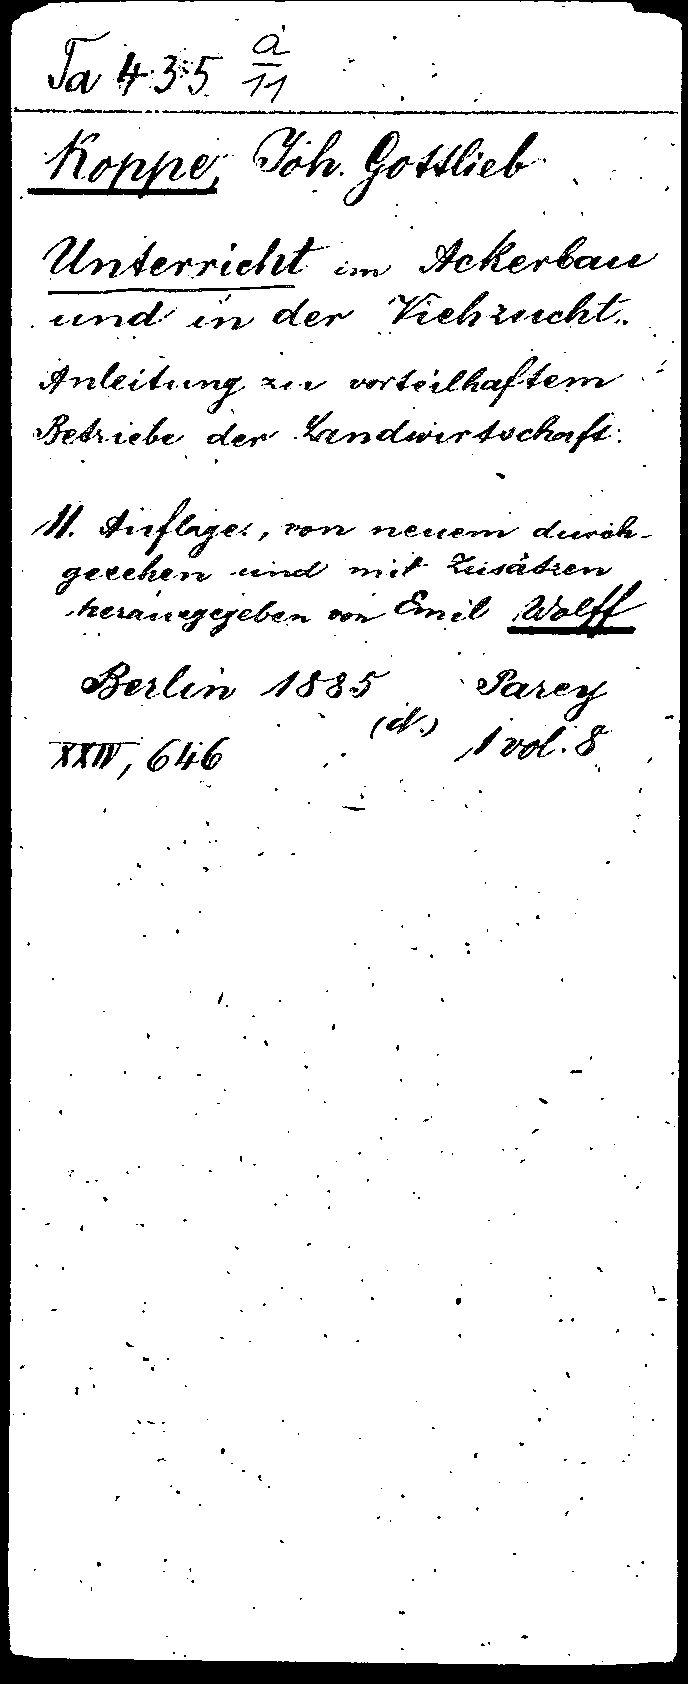 Ta 435 a/11
Koppe, Joh. Gottlieb
Unterricht im Ackerbau
und in der Viehzucht.
Anleitung zu vorteilhaftem
Betriebe der Landwirtschaft.
11. Auflage, von neuem durch-
gesehen und mit Zusätzen
herausgegeben von Emil Wolff
Berlin 1885 Parey
(d.)
XXIV, 646 1 vol. 8